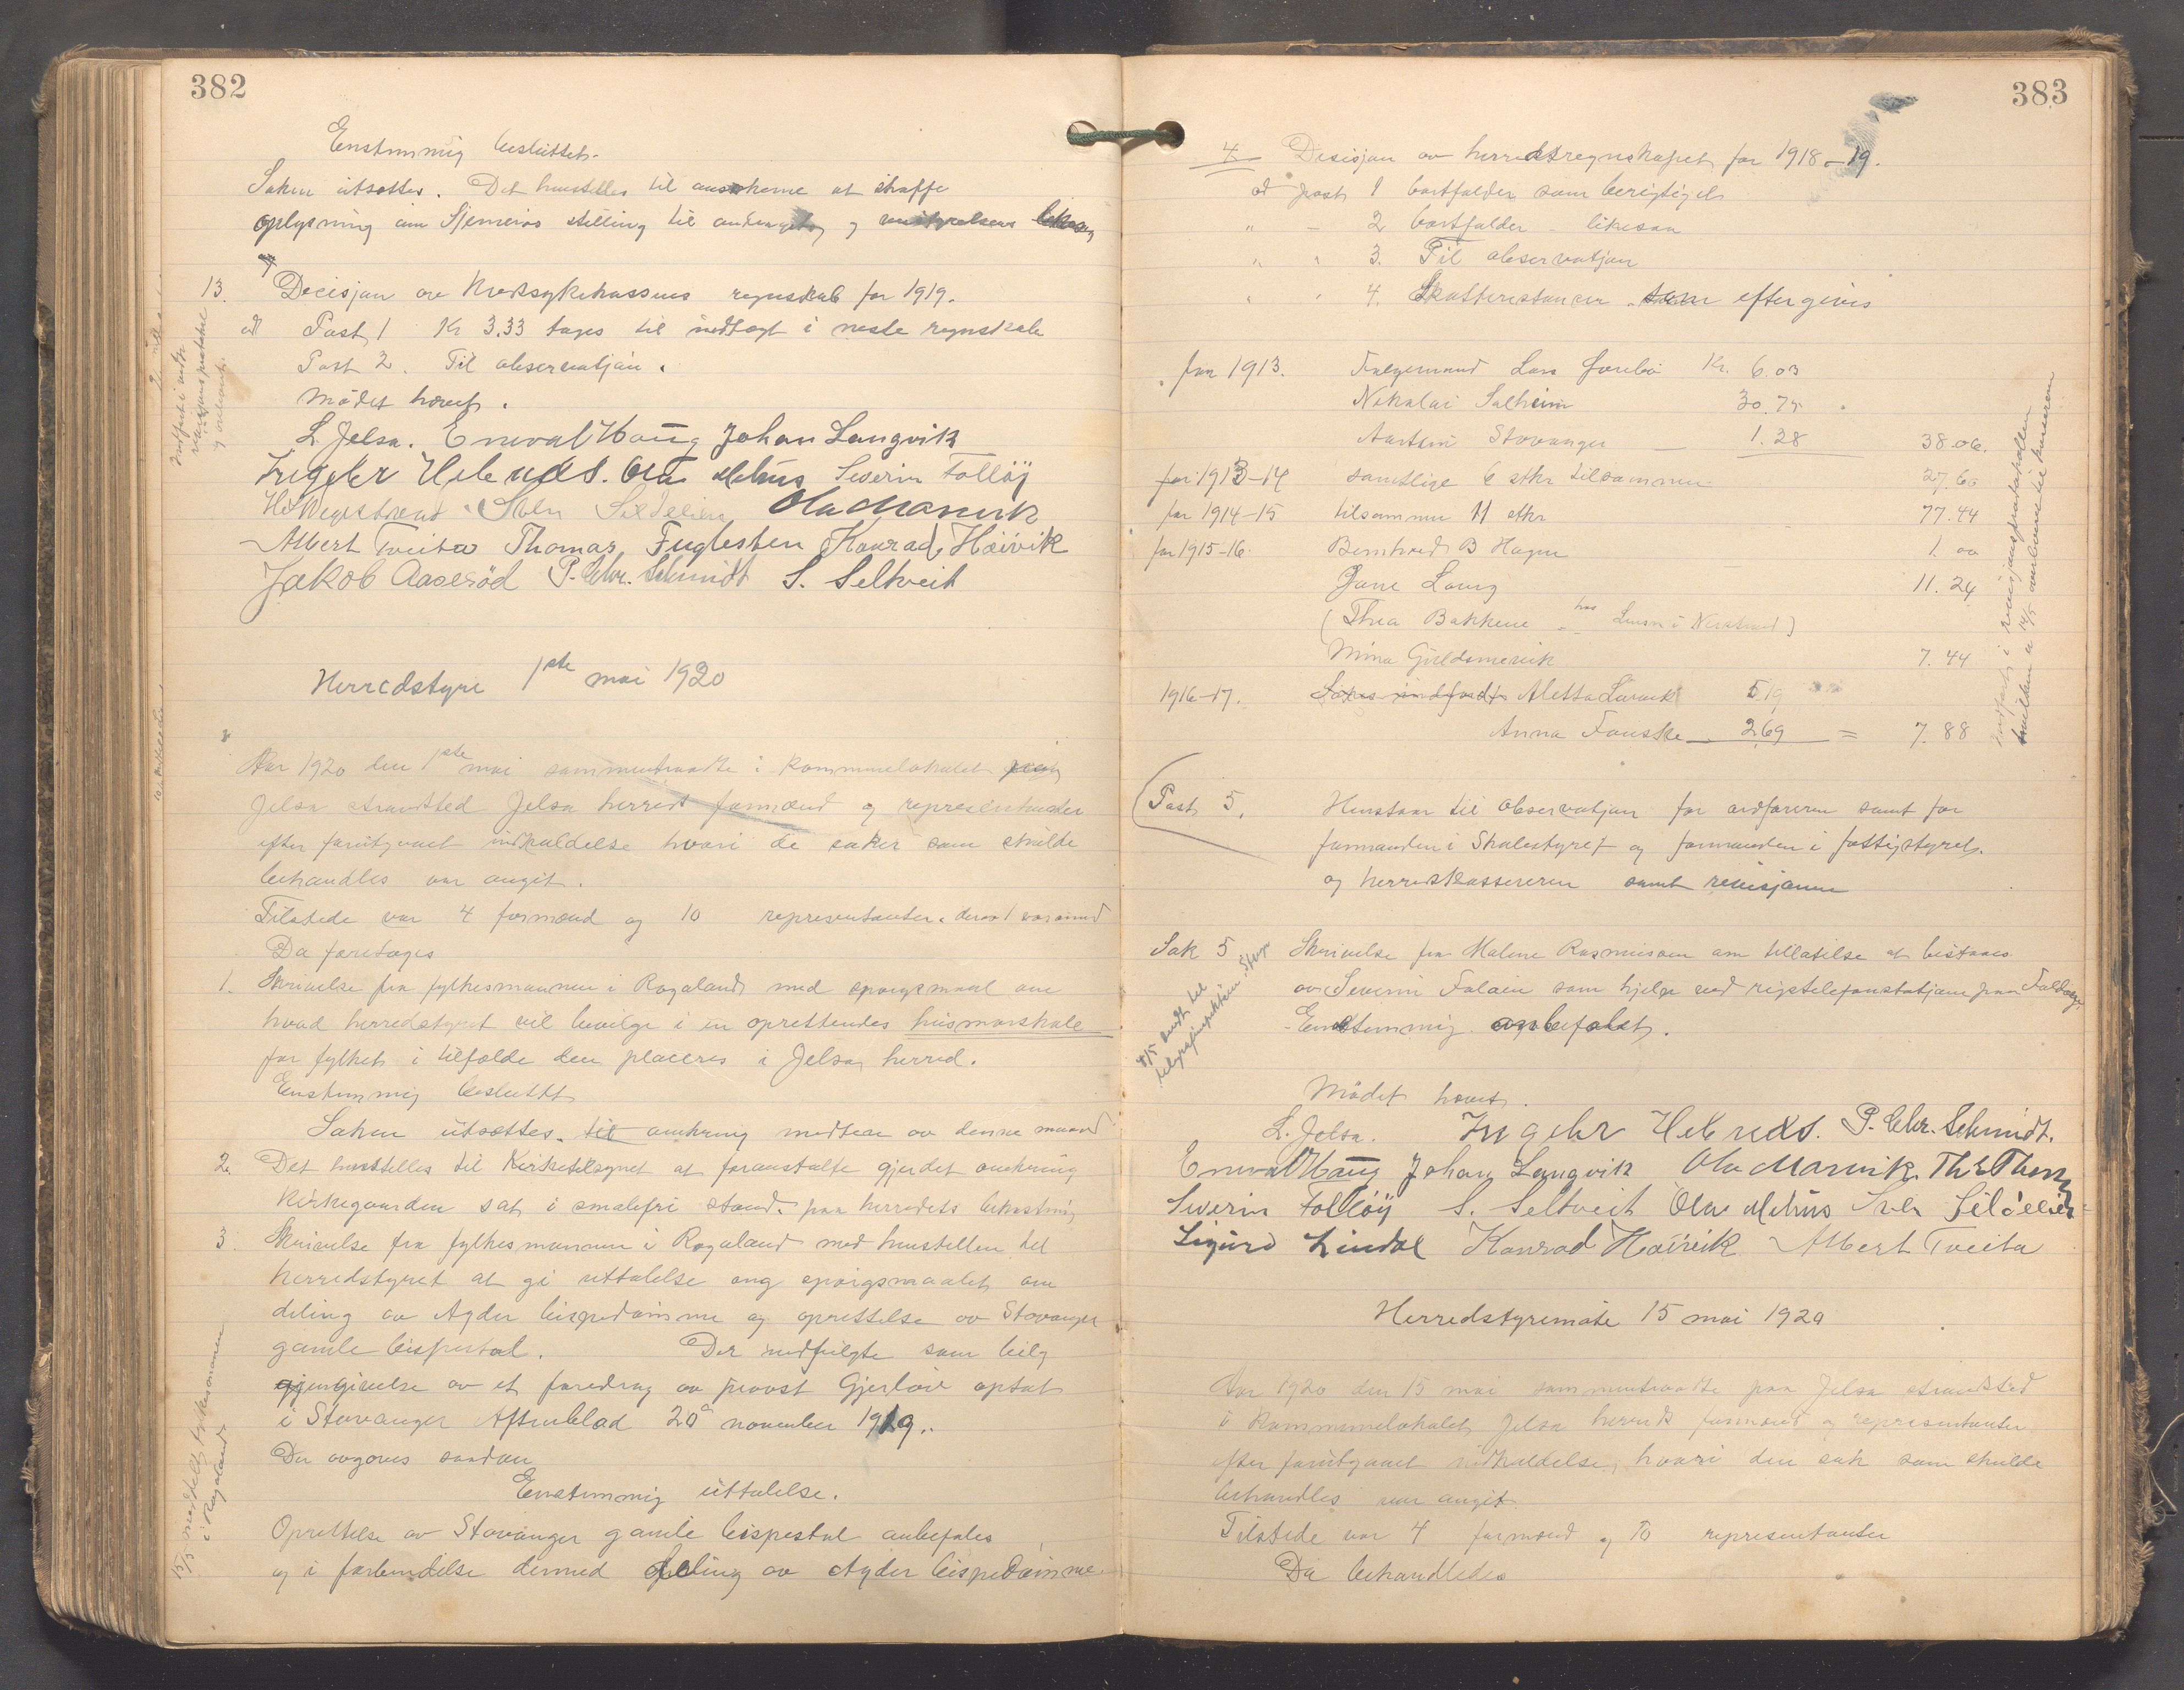 382
Enstemmig besluttet.
Saken utsættes. Det henstilles til ansøkerne at skaffe
oplysning om Sjemeiros stilling til andragendet og
13. Decisjon av Kredssykekassens regnskab for 1919.
ad Post 1 Kr 3.33 tages til indtægt i neste regnskab
Post 2. Til observatjon.
Mødet hævet.
L. Jelsa. Enevald Haug Johan Langvik
Ingebr Hebnes. Ola Mehus Severin Follöÿ
H. Vegestrand Ola Marvik
Albert Tveita Thomas Fuglesten Konrad Høivik
Jakob Aaserød P. Chr. Schmidt S. Seltveit
Herredstyre 1ste mai 1920
Aar 1920 den 1ste mai sammentraadte i kommunelokalet
Jelsa strandsted Jelsa herreds formænd og representanter
efter forutgaaet indkaldelse hvori de saker som skulde
behandles var angit.
Tilstede var 4 formænd og 10 representanter. derav 1 varamand
Da foretoges
1. Skrivelse fra fylkesmannen i Rogaland med spørgsmaal om
hvad herredstyret vil bevilge i en oprettendes husmorskole
for fylket i tilfælde den placeres i Jelsa herred.
Enstemmig besluttet
Saken utsættes. til omkring midten av denne maaned
2. Det henstilles til Kirketilsynet at foranstalte gjerdet omkring
kirkegaarden sat i smalefri stand. paa herredets bekostning
3. Skrivelse fra fylkesmannen i Rogaland med henstillen til
herredstyret at gi uttalelse ang spørgsmaalet om
deling av Agder bispedømme og oprettelse av Stavanger
gamle bispestol. Der medfulgte som bilag
gjengivelse av et foredrag av provst Gjerløw optat
i Stavanger Aftenblad 20de november 1919.
Der avgoves saadan
Enstemmig uttalelse.
Oprettelse av Stavanger gamle bispestol anbefales
og i forbindelse dermed deling av Agder bispedømme.
15/5 meddelt fylkesmannen
i Rogaland
383
4. Decisjon av herredsregnskapet for 1918-19.
ad post 1 bortfalder som berigtiget
" - 2 bortfalder - likesaa
" " 3. Til observatjon
" " 4. Skatterestancer som eftergives
for 1913. Kr. 6.03
Nikolai Salheim 30.75
Stavanger 1.28 38.06.
for 1913-14 samtlige 6 stkr tilsammen 27.60
for 1914-15 tilsammen 11 stkr 77.44
for 1915-16. Bernhard B Hagen 1.00
Jane Laung 11.24
(Thea Bakkene hos Lensm i Nerstrand)
Mina Guldsmevik 7.44
1916-17. Aletta Larvik 5.19
Anna Fauske 2.69 = 7.88
Post 5. Henstaar til observatjon for ordføreren samt for
formanden i Skolestyret og formanden i fattigstyret.
og herredskassereren samt revisjonen
Sak 5 Skrivelse fra Malene Rasmussen om tillatelse at bistaaes
av Severin Foløen som hjelp ved rigstelefonstatjonen paa Foldøy.
Enstemmig anbefalet.
4/5 sendt til
telegrafinspektøren Stvgr
Mødet hævet.
L. Jelsa. Ingebr Hebnes. P. Chr. Schmidt.
Enevald Haug Johan Langvik Ola Marvik. Th E Thomsen
Severin Follöÿ S. Seltveit Ola Mehus
Sigurd Lindal Konrad Høivik Albert Tveita
Herredstyremøte 15 mai 1920
Aar 1920 den 15 mai sammentraadte paa Jelsa strandsted
i Kommunelokalet Jelsa herreds formænd og representanter
efter forutgaaet indkaldelse, hvori den sak som skulde
behandles var angit.
Tilstede var 4 formænd og 10 representanter
Da behandledes